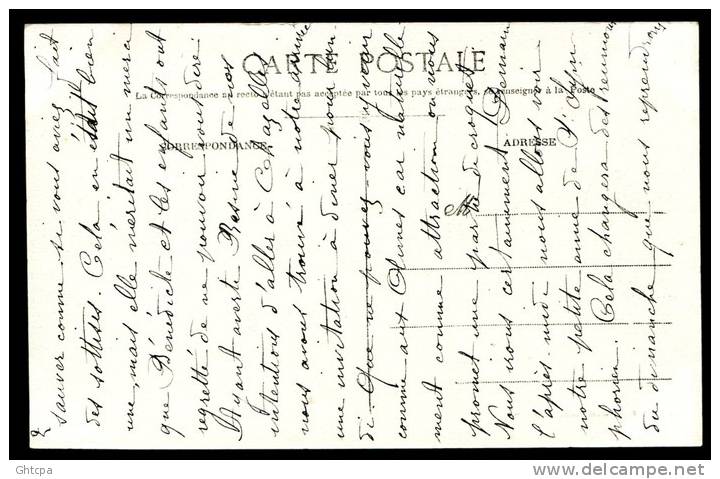 CARTE POSTALE
La Correspondance au recto n'étant pas acceptée par tous les pays étrangers, se renseigner à la Poste
CORRESPONDANCE
ADRESSE
M
2
sauver comme si vous aviez fait
des sottises. Cela en était bien
une, mais elle méritait un merci
que Bénédicte et les enfants ont
regretté de ne pouvoir vous dire!
Ayant averti de nos
intentions d'aller à Chazelles
nous avons trouvé à notre arrivée
une invitation à dîner pour lun
di. Que ne pouvez vous venir
comme aux car naturelle
ment comme attraction on nous
promet une partie de croquet
Nous irons certainement. Demain
l'après-midi nous allons voir
notre petite amie de St
phorien. Cela changera des réunions
du dimanche que nous reprendrons
Ghtcpa
delcampe.net